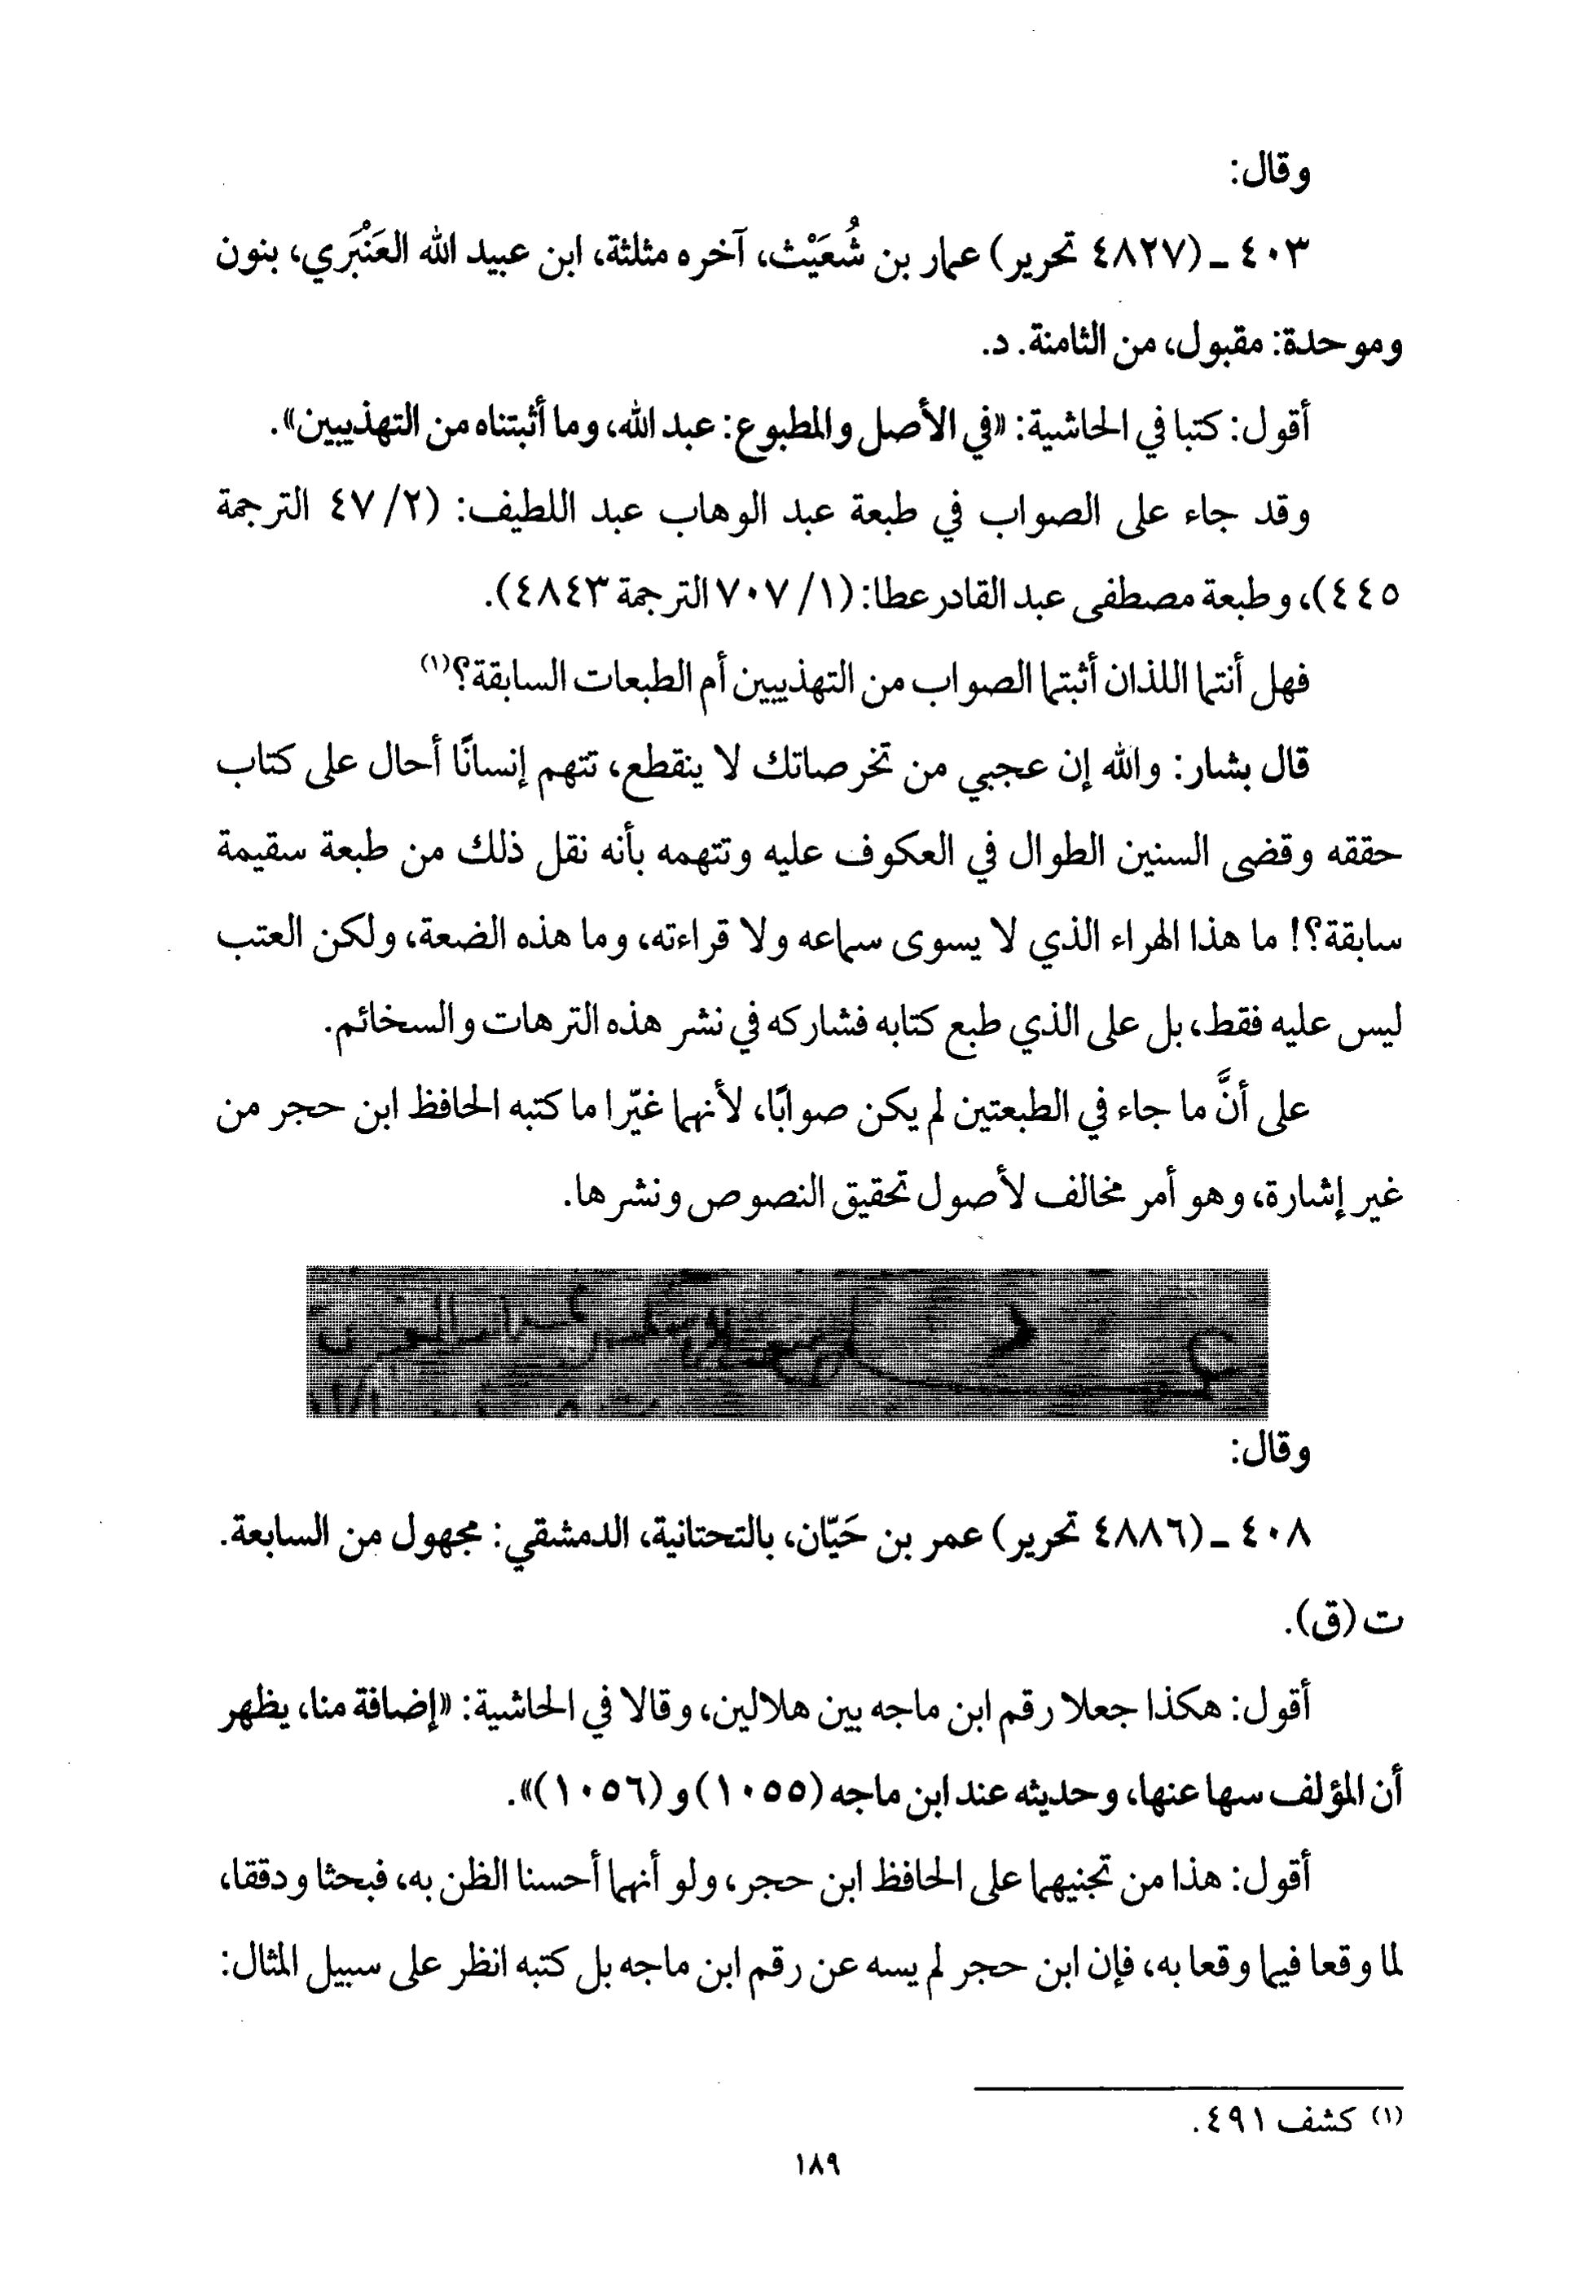 وقال:
٤٠٣ ـ (٤٨٢٧ تحرير) عمار بن شُعَيْث، آخره مثلثة، ابن عبيد الله العَنْبَري، بنون
وموحدة: مقبول، من الثامنة. د.
أقول: كتبا في الحاشية: «في الأصل والمطبوع: عبد الله، وما أثبتناه من التهذيبين».
وقد جاء على الصواب في طبعة عبد الوهاب عبد اللطيف: (٢/ ٤٧ الترجمة
٤٤٥)، وطبعة مصطفى عبد القادر عطا: (١/ ٧٠٧ الترجمة ٤٨٤٣).
فهل أنتما اللذان أثبتما الصواب من التهذيبين أم الطبعات السابقة؟(١)
قال بشار: والله إن عجبي من تخرصاتك لا ينقطع، تتهم إنسانًا أحال على كتاب
حققه وقضى السنين الطوال في العكوف عليه وتتهمه بأنه نقل ذلك من طبعة سقيمة
سابقة؟! ما هذا الهراء الذي لا يسوى سماعه ولا قراءته، وما هذه الضعة، ولكن العتب
ليس عليه فقط، بل على الذي طبع كتابه فشاركه في نشر هذه الترهات والسخائم.
على أنَّ ما جاء في الطبعتين لم يكن صوابًا، لأنهما غيّرا ما كتبه الحافظ ابن حجر من
غير إشارة، وهو أمر مخالف لأصول تحقيق النصوص ونشرها.
وقال:
٤٠٨ ـ (٤٨٨٦ تحرير) عمر بن حَيّان، بالتحتانية، الدمشقي: مجهول من السابعة.
ت (ق).
أقول: هكذا جعلا رقم ابن ماجه بين هلالين، وقالا في الحاشية: «إضافة منا، يظهر
أن المؤلف سها عنها، وحديثه عند ابن ماجه (١٠٥٥) و (١٠٥٦)».
أقول: هذا من تجنيهما على الحافظ ابن حجر، ولو أنهما أحسنا الظن به، فبحثا ودققا،
لما وقعا فيما وقعا به، فإن ابن حجر لم يسه عن رقم ابن ماجه بل كتبه انظر على سبيل المثال:
(١) كشف ٤٩١.
١٨٩